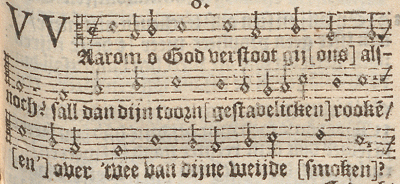 8.
VVAarom o God verstoot gij [ons] als
noch? sall dan dijn toorn [gestadelicken] rookẽ/
[en'] over 'twee van dijne weijde [smoken]?